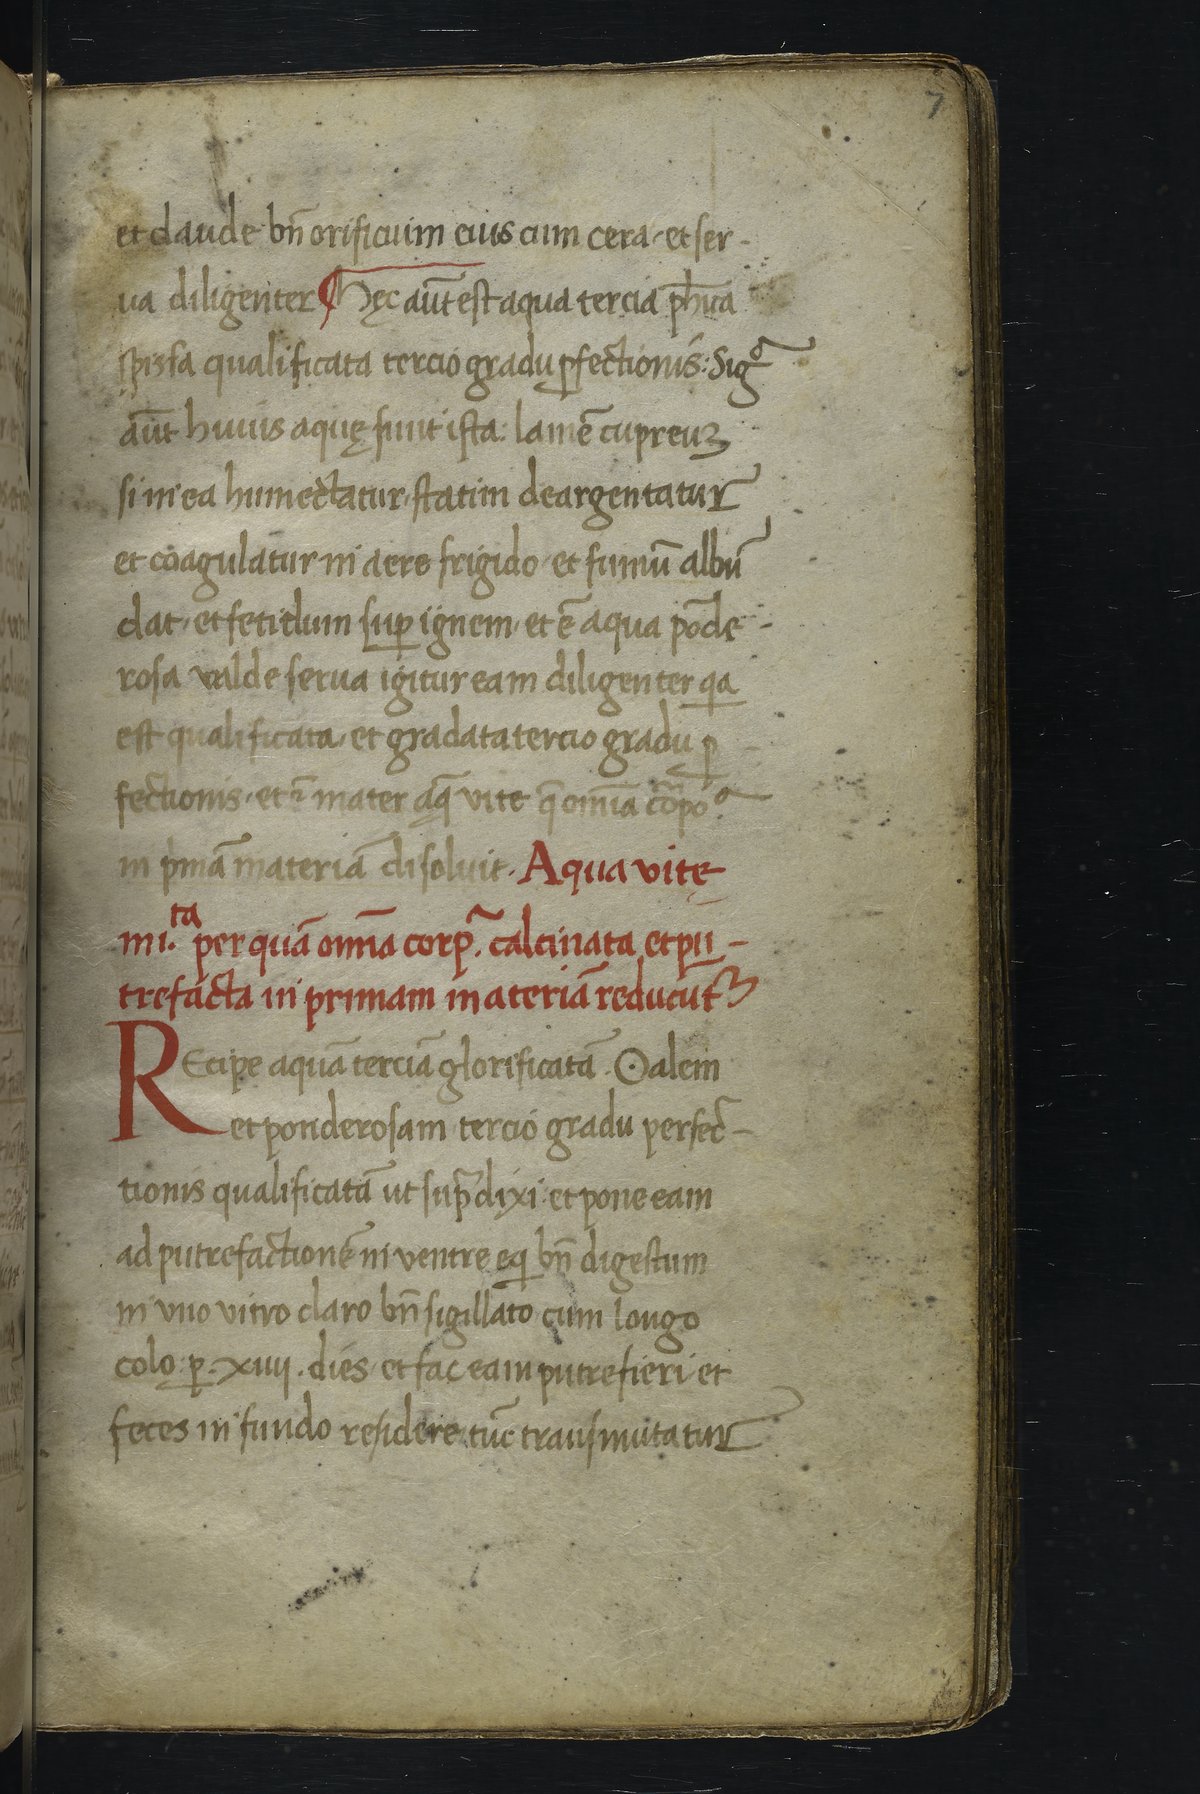 7
et claude bn̄ orificium eius cum cera et ser-
ua diligenter Hęc aūt est aqua tercia ph̄ica
spissa qualificata tercio gradu ꝑfectionis: Sigᵃ
aūt huius aquę sunt ista: lamē cupreuꝫ
si in ea humectatur, statim deargentatur
et coagulatur in aere frigido et fumū albū
dat, et fetidum suꝑ ignem, et ē aqua pōde-
rosa valde serua igitur eam diligenter qa
est qualificata, et gradata tercio gradu ꝑ-
fectionis, et ē mater aq̄ vite q̄ omīa corpoᵃ
in pͥmā materiā disoluit. Aqua vitę
iiii.ᵗᵃ per quā omīa corpᵃ. calcinata et pu-
trefacta in primam materiā reducūtᷣ
REcipe aquā terciā glorificatā. ☉alem
et ponderosam tercio gradu perfec-
tionis qualificatā ut sup̄ dixi: et pone eam
ad putrefactionē in ventre eqͥ bn̄ digestum
in vno vitro claro bn̄ sigillato cum longo
colo: ꝑ. xiiij. dies, et fac eam putrefieri et
feces in fundo residere, tūc transmutatur